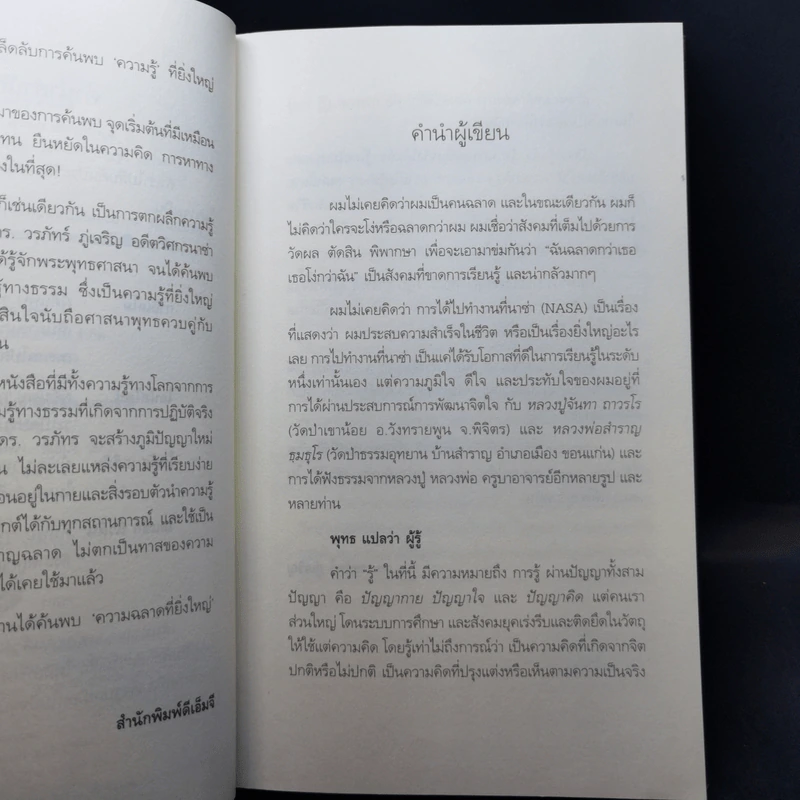 ล็ดลับการค้นพบ 'ความรู้' ที่ยิ่งใหญ่
มาของการค้นพบ จุดเริ่มต้นที่มีเหมือน
ทน ยืนหยัดในความคิด การหาทาง
งในที่สุด!
ก็เช่นเดียวกัน เป็นการตกผลึกความรู้
ดร. วรภัทร์ ภู่เจริญ อดีตวิศกรนาซ่า
ด้รู้จักพระพุทธศาสนา จนได้ค้นพบ
รู้ทางธรรม ซึ่งเป็นความรู้ที่ยิ่งใหญ่
สินใจนับถือศาสนาพุทธควบคู่กับ
น
หนังสือที่มีทั้งความรู้ทางโลกจากการ
มรู้ทางธรรมที่เกิดจากการปฏิบัติจริง
ดร. วรภัทร จะสร้างภูมิปัญญาใหม่
น ไม่ละเลยแหล่งความรู้ที่เรียบง่าย
อนอยู่ในกายและสิ่งรอบตัวนำความรู้
กต์ได้กับทุกสถานการณ์ และใช้เป็น
าญฉลาด ไม่ตกเป็นทาสของความ
ได้เคยใช้มาแล้ว
านได้ค้นพบ 'ความฉลาดที่ยิ่งใหญ่'
สำนักพิมพ์ดีเอ็มจี
คำนำผู้เขียน
ผมไม่เคยคิดว่าผมเป็นคนฉลาด และในขณะเดียวกัน ผมก็
ไม่คิดว่าใครจะโง่หรือฉลาดกว่าผม ผมเชื่อว่าสังคมที่เต็มไปด้วยการ
วัดผล ตัดสิน พิพากษา เพื่อจะเอามาข่มกันว่า "ฉันฉลาดกว่าเธอ
เธอโง่กว่าฉัน" เป็นสังคมที่ขาดการเรียนรู้ และน่ากลัวมากๆ
ผมไม่เคยคิดว่า การได้ไปทำงานที่นาซ่า (NASA) เป็นเรื่อง
ที่แสดงว่า ผมประสบความสำเร็จในชีวิต หรือเป็นเรื่องยิ่งใหญ่อะไร
เลย การไปทำงานที่นาซ่า เป็นแค่ได้รับโอกาสที่ดีในการเรียนรู้ในระดับ
หนึ่งเท่านั้นเอง แต่ความภูมิใจ ดีใจ และประทับใจของผมอยู่ที่
การได้ผ่านประสบการณ์การพัฒนาจิตใจ กับ หลวงปู่จันทา ถาวรโร
(วัดป่าเขาน้อย อ.วังทรายพูน จ.พิจิตร) และ หลวงพ่อสำราญ
ธมฺธุโร (วัดป่าธรรมอุทยาน บ้านสำราญ อำเภอเมือง ขอนแก่น) และ
การได้ฟังธรรมจากหลวงปู่ หลวงพ่อ ครูบาอาจารย์อีกหลายรูป และ
หลายท่าน
พุทธ แปลว่า ผู้รู้
คำว่า "รู้" ในที่นี้ มีความหมายถึง การรู้ ผ่านปัญญาทั้งสาม
ปัญญา คือ ปัญญากาย ปัญญาใจ และ ปัญญาคิด แต่คนเรา
ส่วนใหญ่ โดนระบบการศึกษา และสังคมยุคเร่งรีบและติดยึดในวัตถุ
ให้ใช้แต่ความคิด โดยรู้เท่าไม่ถึงการณ์ว่า เป็นความคิดที่เกิดจากจิต
ปกติหรือไม่ปกติ เป็นความคิดที่ปรุงแต่งหรือเห็นตามความเป็นจริง